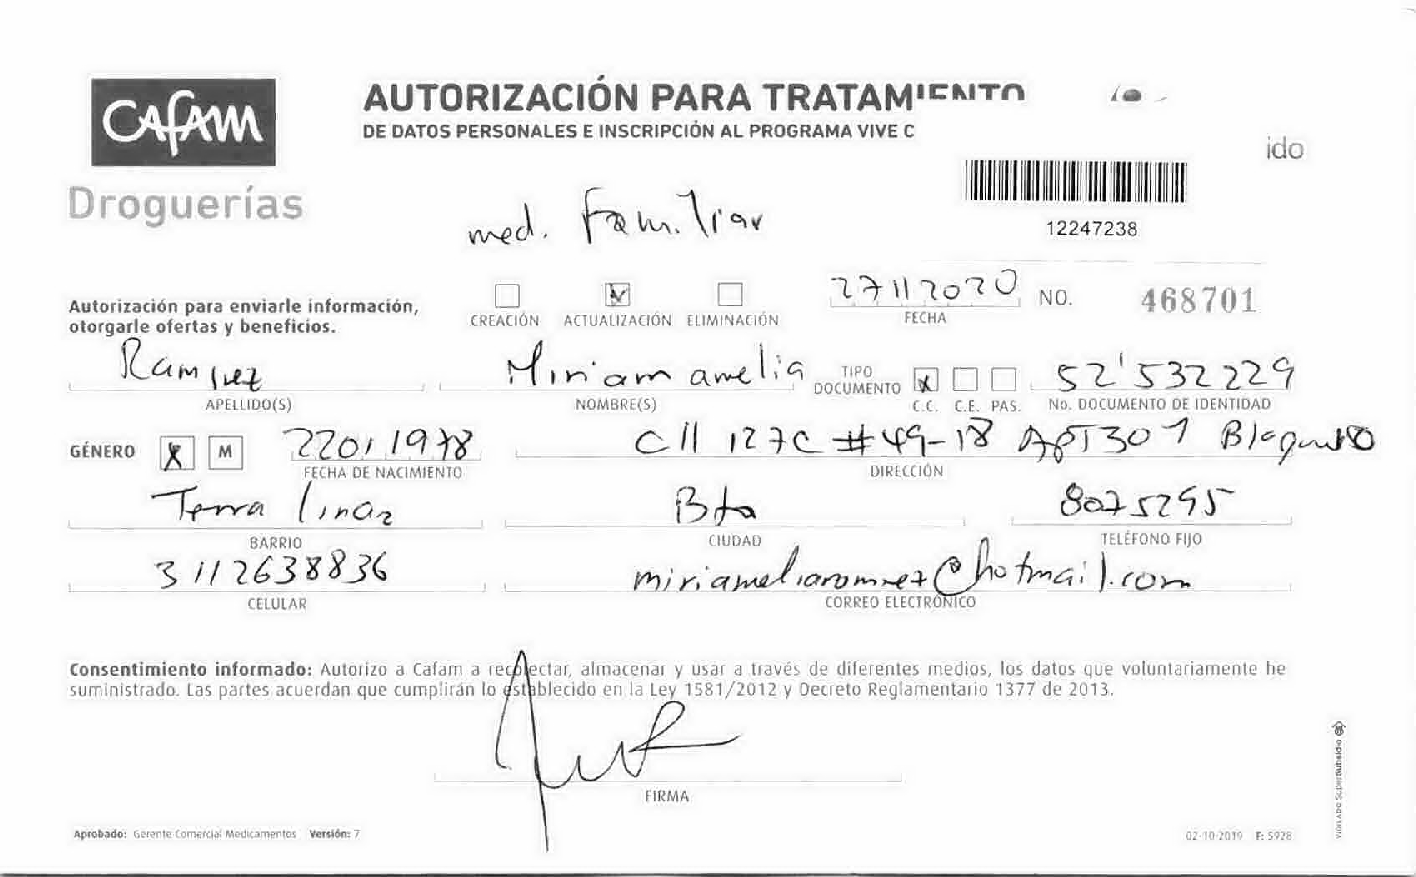 CAFAM
Droguerías
AUTORIZACIÓN PARA TRATAMIENTO
DE DATOS PERSONALES E INSCRIPCIÓN AL PROGRAMA VIVE C
ido
12247238
med. Familiar
Autorización para enviarle información,
otorgarle ofertas y beneficios.
CREACIÓN ACTUALIZACIÓN ELIMINACIÓN
27112020
FECHA
NO. 468701
Ramirez
APELLIDO(S)
Miriam amelia
NOMBRE(S)
TIPO
DOCUMENTO
C.C. C.E. PAS.
52'532229
No. DOCUMENTO DE IDENTIDAD
GÉNERO X M
22011978
FECHA DE NACIMIENTO
Cll 127C #49-18 Apt 301
DIRECCIÓN
BARRIO
Bta
CIUDAD
8075295
TELÉFONO FIJO
3112638836
CELULAR
@hotmail.com
CORREO ELECTRÓNICO
Consentimiento informado: Autorizo a Cafam a recolectar, almacenar y usar a través de diferentes medios, los datos que voluntariamente he
suministrado. Las partes acuerdan que cumplirán lo establecido en la Ley 1581/2012 y Decreto Reglamentario 1377 de 2013.
FIRMA
Aprobado: Gerente Comercial Medicamentos Versión: 7
02-10-2019 F: 5928
VIGILADO SuperSubsidio